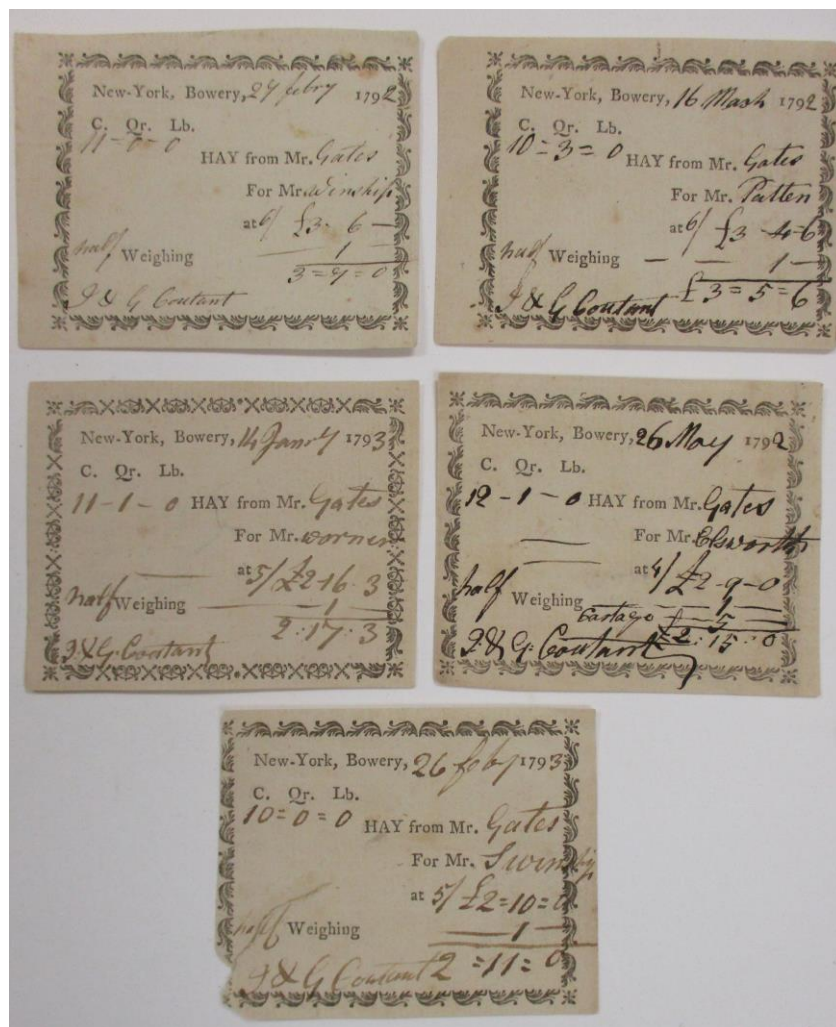 New-York, Bowery, 27 febry 1792
C. Qr. Lb.
11-0-0
HAY from Mr. Gates
For Mr. Winship
at 6/ £3- 6 —
half Weighing — 1 —
3=7=0
I & G Coutant
New-York, Bowery, 16 Mash 1792
C. Qr. Lb.
10=3=0
HAY from Mr. Gates
For Mr. Patten
at 6/ £3-4-6
half Weighing — — 1 —
I & G Coutant £3=5=6
New-York, Bowery, 14 Jany 1793
C. Qr. Lb.
11-1-0 HAY from Mr. Gates
For Mr.
at 5/ £2-16-3
half Weighing — 1 —
2:17:3
I & G. Coutant
New-York, Bowery, 26 May 1792
C. Qr. Lb.
12-1-0 HAY from Mr. Gates
For Mr. Elsworth
at 4/ £2-9-0
half Weighing — 1 —
Cartage — 5 —
I & G. Coutant £2:15:0
New-York, Bowery, 26 feby 1793
C. Qr. Lb.
10=0=0
HAY from Mr. Gates
For Mr.
at 5/ £2=10=0
half Weighing — 1 —
I & G Coutant 2=11=0